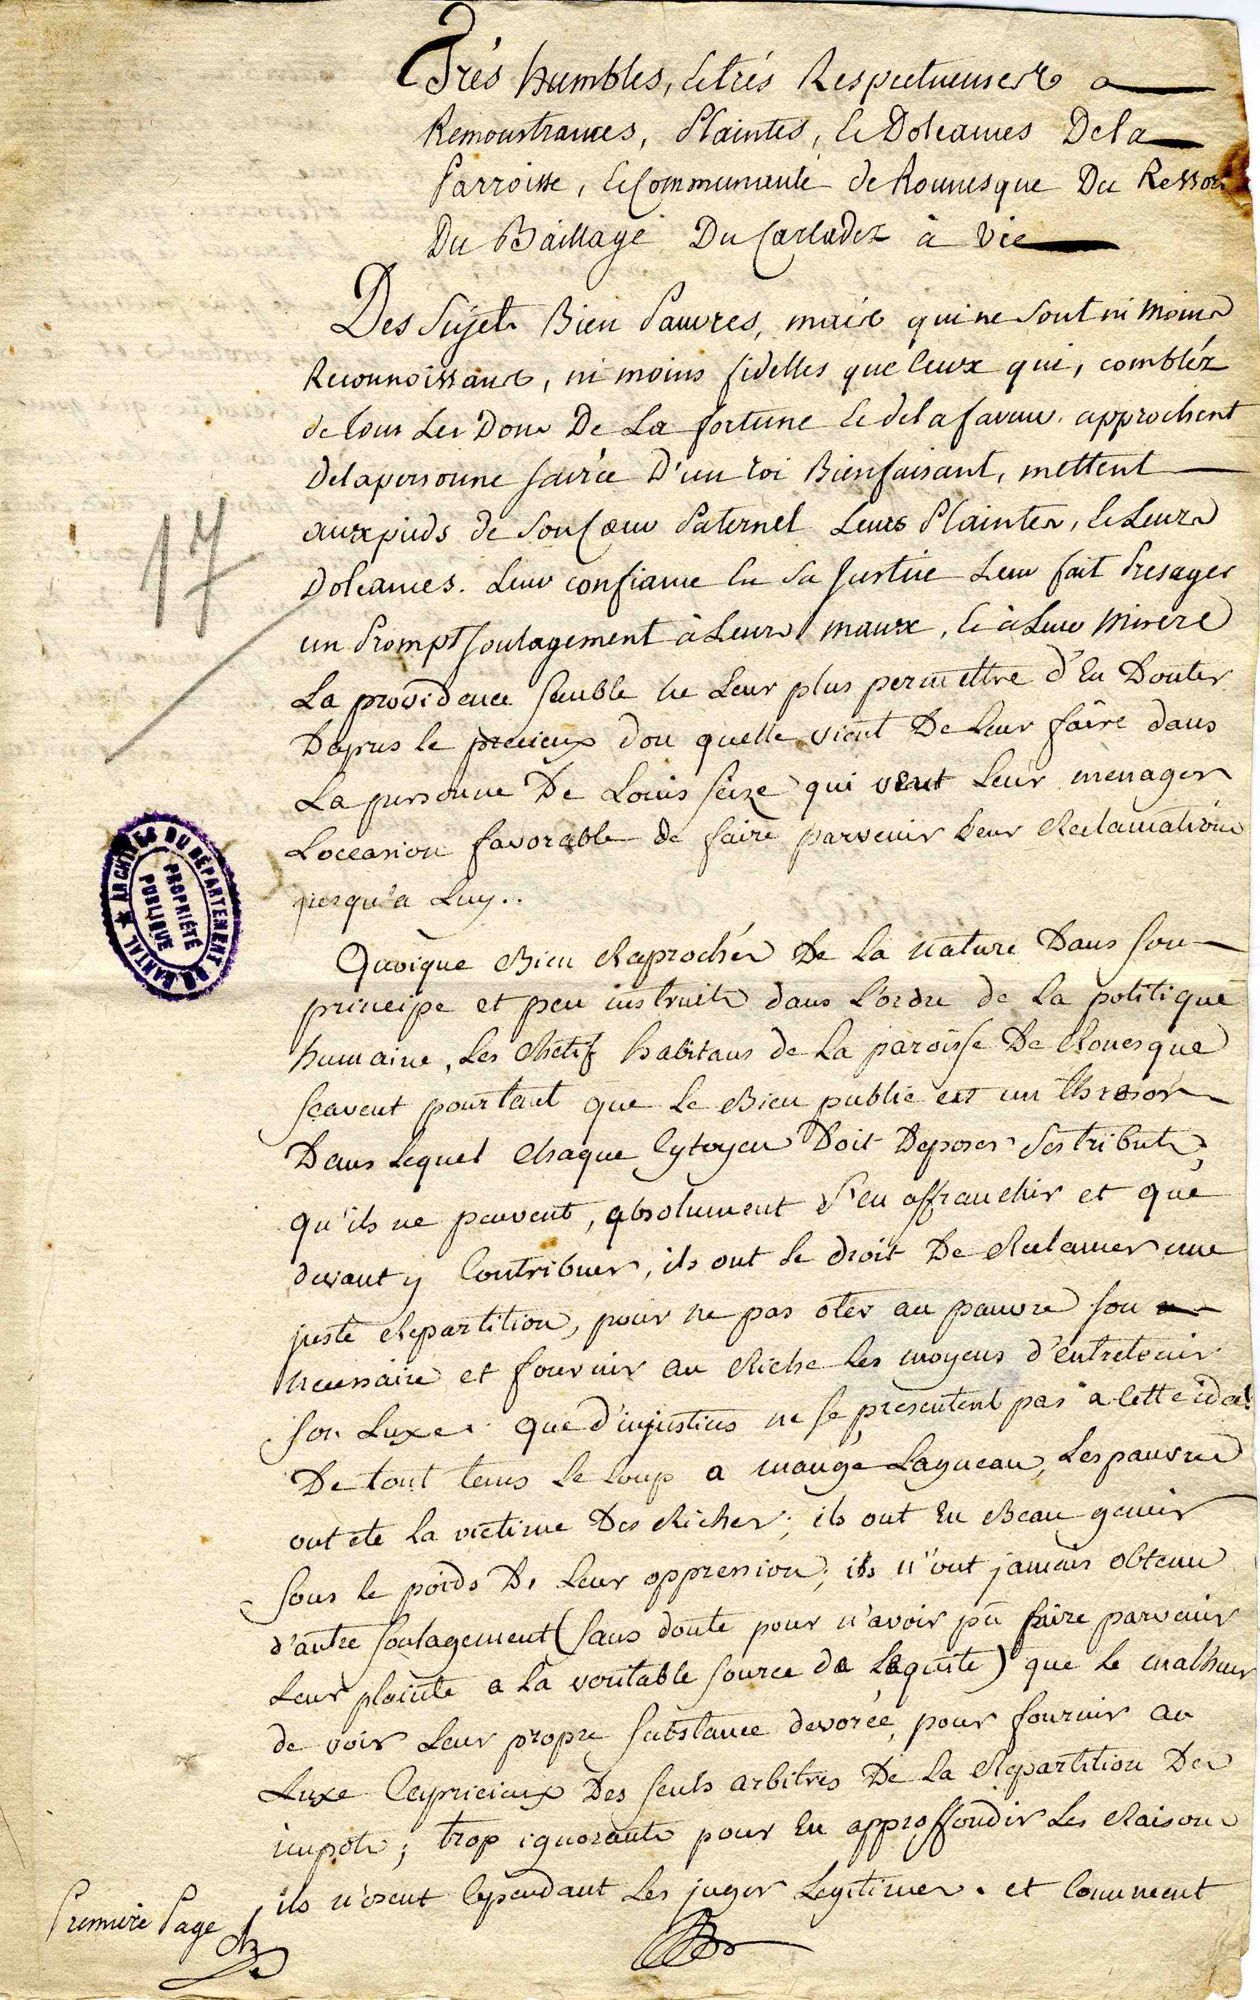 Trés humbles, et trés Respectueuses
Remoustrances, Plaintes, et Doleances De la
Parroisse, et Communauté de Rounesque Du Ressort
Du Baillage Du Carladez à Vic
Des Sujets Bien Pauvres, mais qui ne sont ni moins
Reconnoissants, ni moins fidelles que Ceux qui, combléz
de tous Les Dons De La fortune et de la faveur approchent
de la personne sacrée D'un roi Bienfaisant, mettent
aux pieds de son Cœur Paternel Leurs Plaintes, et Leurs
Doleances. Leur confiance en Sa Justice Leur fait Presager
un Prompt soulagement à Leurs maux, et à Leur Misere
La providence semble ne Leur plus permettre d'En Douter
Depuis le precieux don quelle vient De Leur faire dans
La personne De Louis Seize qui veut Leur menager
L'occasion favorable de faire parvenir Leur Reclamations
jusqu'a Luy..
Quoique Bien Raprochés De La nature Dans son
principe et peu instruits dans L'ordre de La politique
humaine, Les Chetifs habitans de La paroisse De Rouesque
scavent pourtant que Le Bien public est un thresor
Dans Lequel Chaque Cytoyen Doit Deposer Ses tributs,
qu'ils ne peuvent, absolument s'en affranchir et que
devant y Contribuer, ils ont Le droit De Reclamer une
juste Repartition, pour ne pas oter au pauvre son
necessaire et fournir au Riche Les moyens d'entretenir
son Luxe. que d'injustices ne se presentent pas a cette idée!
De tout tems Le Loup a mangé Lagneau, Les pauvres
ont été La victime Des Riches; ils ont Eu Beau gemir
sous le poids De Leur oppression; ils n'ont jamais obtenu
d'autre soulagement (sans doute pour n'avoir pû faire parvenir
Leur plainte a La veritable source de Lequite) que Le malheur
de voir Leur propre substance devorée, pour fournir au
Luxe Capricieux Des seuls arbitres De La Repartition Des
impots; trop ignorants pour En approffondir Les Raisons
ils n'osent Cependant Les juger Legitimes. et Comment
Premiere Page
17
ARCHIVES DU DÉPARTEMENT DU CANTAL ★
PROPRIÉTÉ
PUBLIQUE